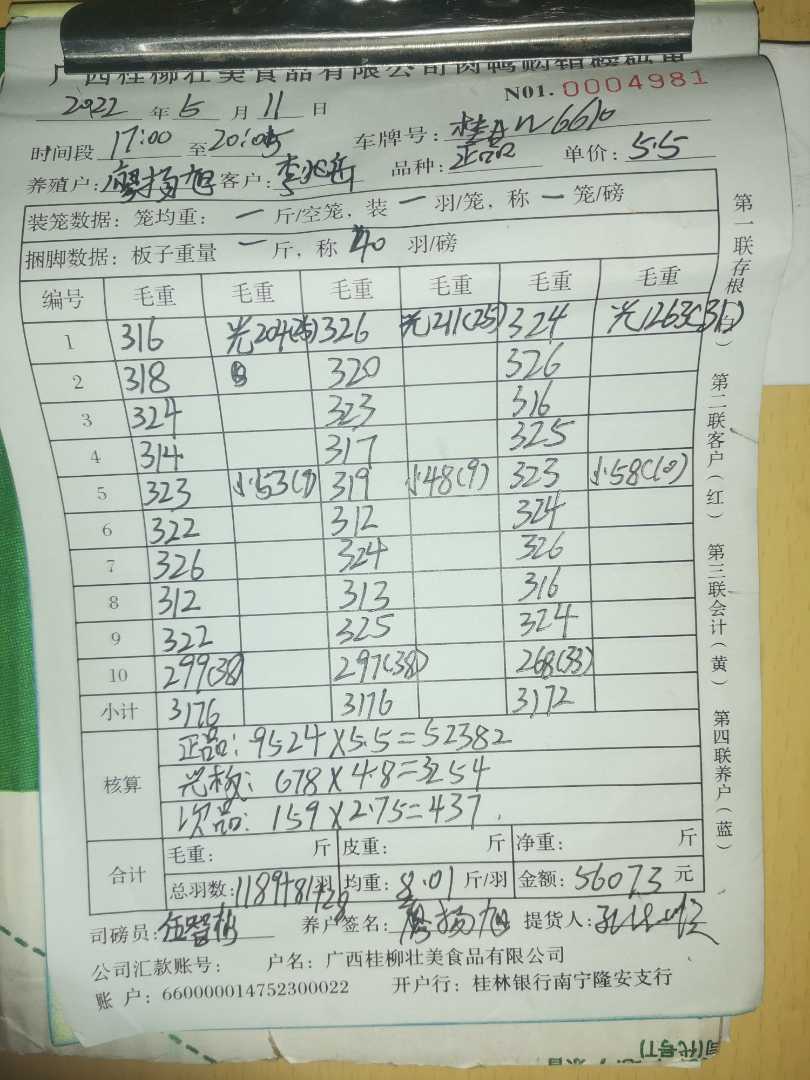 广西桂柳壮美食品有限公司肉鸭购销磅码单
2022 年 5 月 11 日 N01. 0004981
时间段 17:00 至 20:05 车牌号: 桂AW6610
养殖户: 廖扬旭 客户: 品种: 正品 单价: 5.5
装笼数据: 笼均重: 一 斤/空笼, 装 一 羽/笼, 称 一 笼/磅
捆脚数据: 板子重量 一 斤, 称 40 羽/磅
编号 毛重 毛重 毛重 毛重 毛重 毛重
1 316 光204(25) 326 光211(25) 324 光263(31)
2 318 320 326
3 324 323 316
4 314 317 325
5 323 小53(9) 319 小48(9) 323 小58(10)
6 322 312 324
7 326 324 326
8 312 313 316
9 322 325 324
10 299(38) 297(38) 268(33)
小计 3176 3176 3172
核算 正品: 9524×5.5=52382
光板: 678×4.8=3254
次品: 159×2.75=437.
合计 毛重: 斤 皮重: 斤 净重: 斤
总羽数: 1189+81+28 羽 均重: 8.01 斤/羽 金额: 56073 元
司磅员: 养户签名: 廖扬旭 提货人:
公司汇款账号: 户名: 广西桂柳壮美食品有限公司
账 户: 660000014752300022 开户行: 桂林银行南宁隆安支行
第一联存根(白) 第二联客户(红) 第三联会计(黄) 第四联养户(蓝)